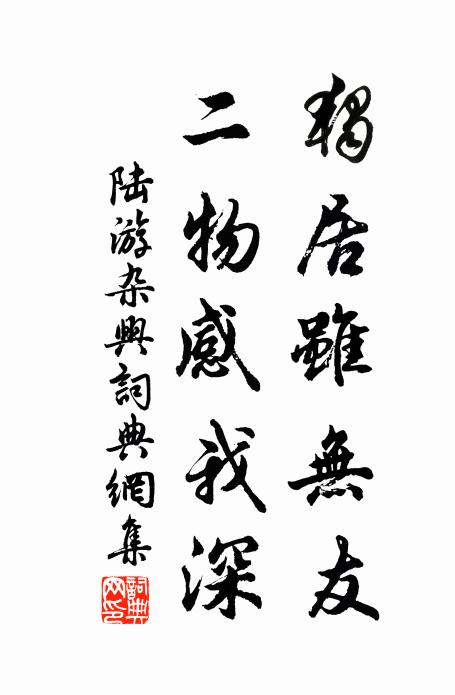 獨居雖無友
二物感我深
陸游杂興詞典網集
詞典
网印